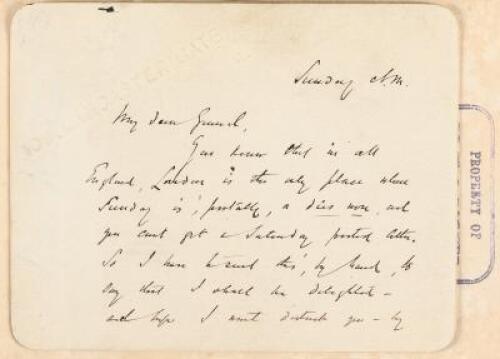 Sunday A.M.
My dear
You know that in all
England, London is the only place where
Sunday is, postally, a dies non, and
you can't get a Saturday posted letter.
So I have to send this, by hand, to
say that I shall be delighted –
and hope I won't disturb you – by
PROPERTY OF